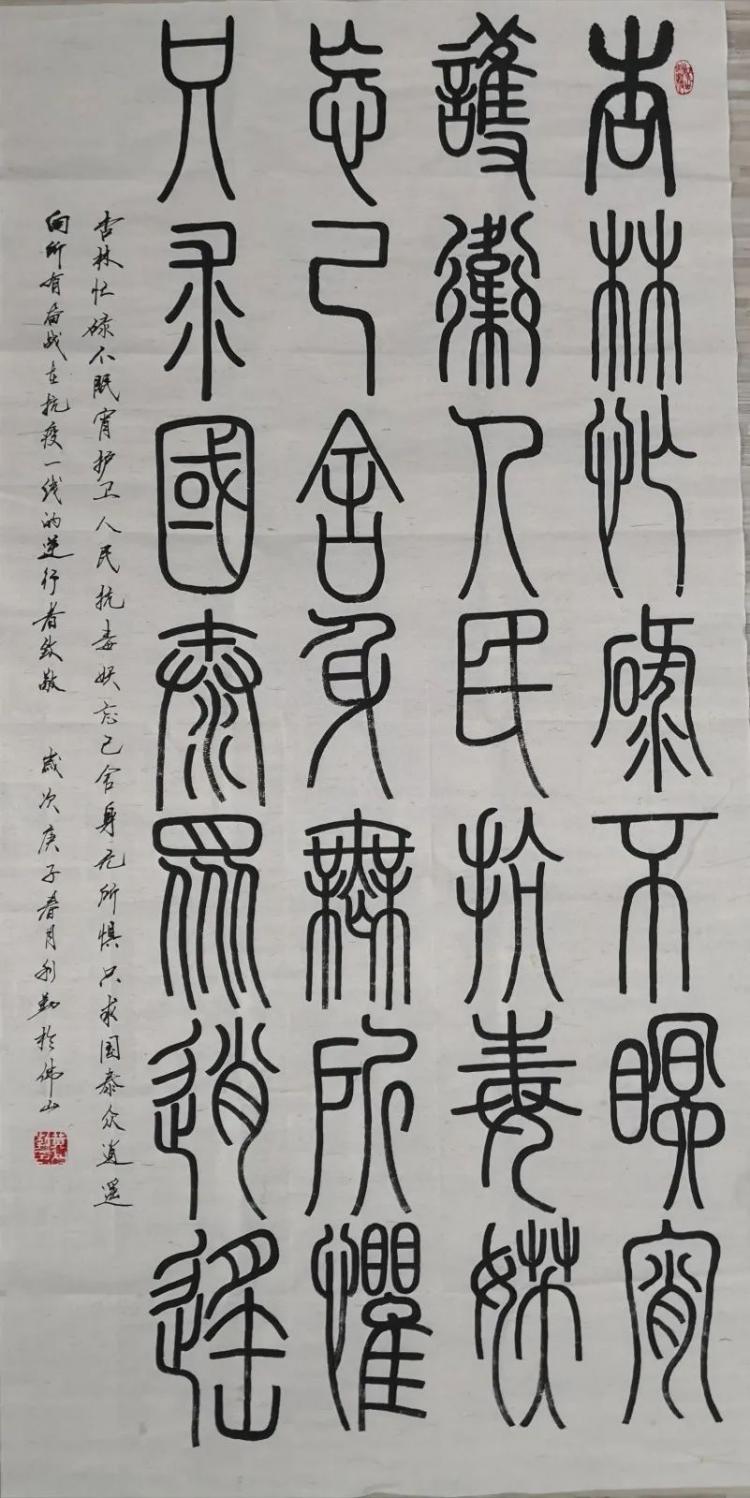 杏林忙碌不眠宵
護衛人民抗毒妖
忘己舍身無所懼
只求國泰眾逍遙
杏林忙碌不眠宵护卫人民抗毒妖忘己舍身无所惧只求国泰众逍遥
向所有奋战在抗疫一线的逆行者致敬 岁次庚子春月於佛山